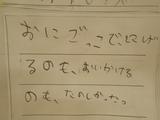 おにごっこで、にげ
るのも、おいかける
のも、たのしかったっ